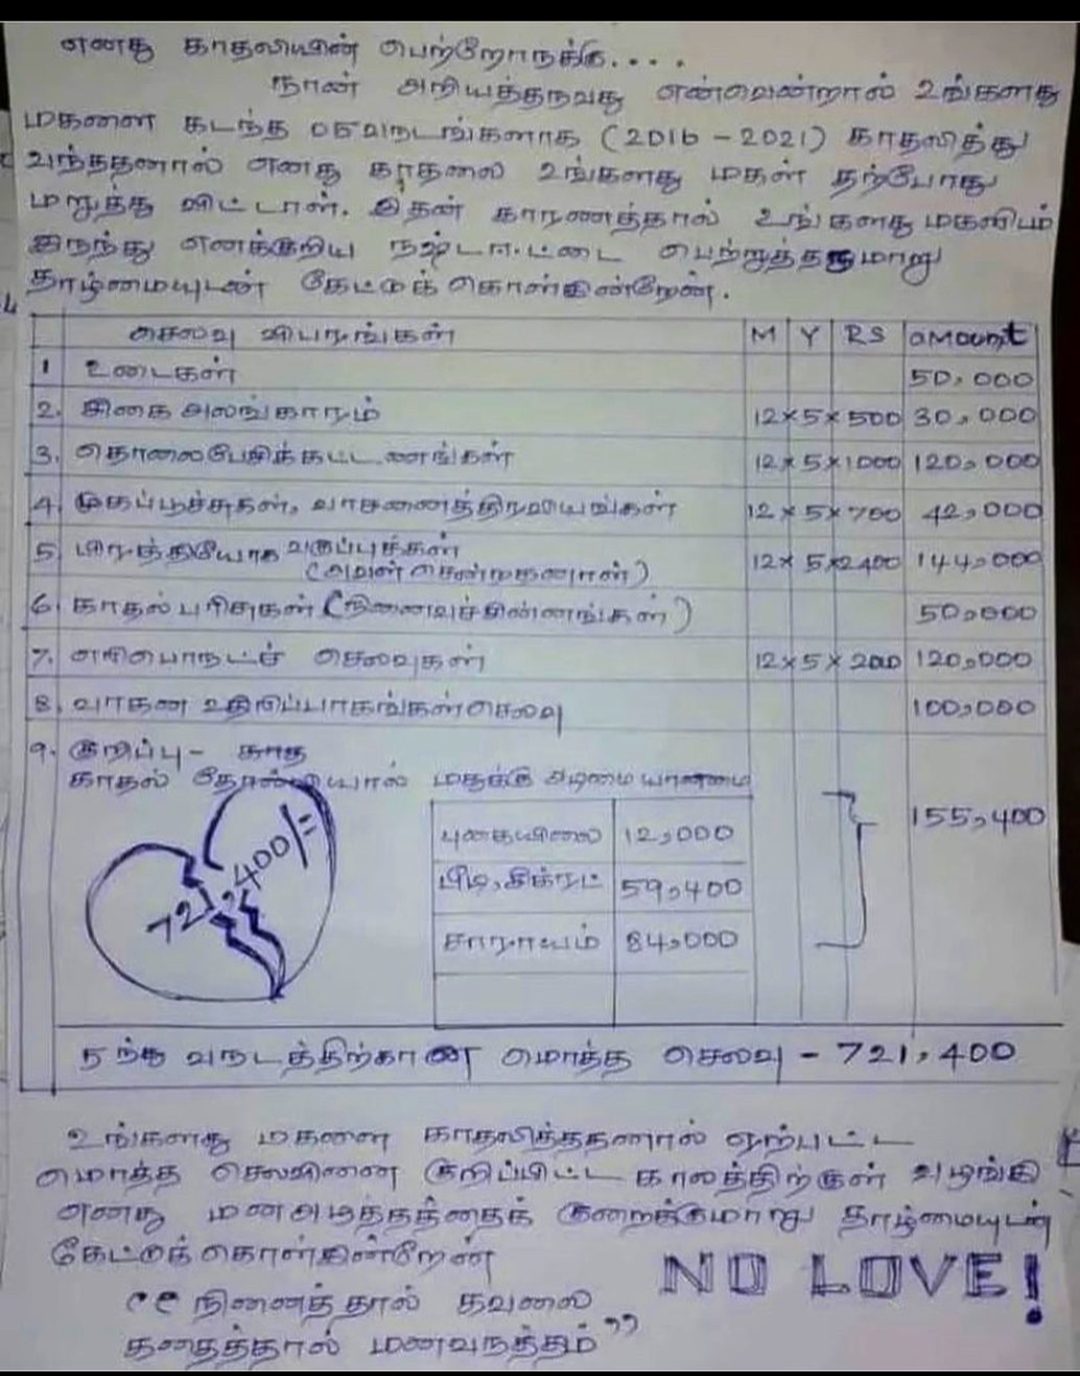 எனது காதலியின் பெற்றோருக்கு....
நான் அறியத்தருவது என்வென்றால் உங்களது
மகளை கடந்த 05வருடங்களாக (2016 - 2021) காதலித்து
வந்ததனால் எனது காதலை உங்களது மகள் தற்போது
மறுத்து விட்டாள். இதன் காரணத்தால் உங்களது மகளிடம்
இருந்து எனக்குறிய நஷ்டஈட்டை பெற்றுத்தருமாறு
தாழ்மையுடன் கேட்டுக் கொள்கின்றேன்.
செலவு விபரங்கள் M Y RS amount
1 உடைகள் 50,000
2. சிகை அலங்காரம் 12 x 5 x 500 30,000
3. தொலைபேசிக்கட்டணங்கள் 12 x 5 x 1000 120,000
4. முகப்பூச்சுகள், வாசனைத்திரவியங்கள் 12 x 5 x 700 42,000
5. பிரத்தியேக வகுப்புக்கள் 12 x 5 x 2400 144,000
(அவள் சென்றதனால்)
6. காதல் பரிசுகள் (நினைவுச்சின்னங்கள்) 50,000
7. எரிபொருட்ச் செலவுகள் 12 x 5 x 2000 120,000
8. வாகன உதிரிப்பாகங்கள் செலவு 100,000
9. குறிப்பு - காத
காதல் தோல்வியால் மதுக்கு அடிமையானமை
புகையிலை 12,000
பீடி, சிக்ரட் 59,400
சாராயம் 84,000
155,400
721,400/=
5 ந்து வருடத்திற்கான மொத்த செலவு - 721,400
உங்களது மகளை காதலித்ததனால் ஏற்பட்ட
மொத்த செலவினை குறிப்பிட்ட காலத்திற்குள் வழங்கி
எனது மனஅழுத்தத்தைக் குறைக்குமாறு தாழ்மையுடன்
கேட்டுக் கொள்கின்றேன்
NO LOVE!
"நினைத்தால் கவலை
கதைத்தால் மனவருத்தம்"